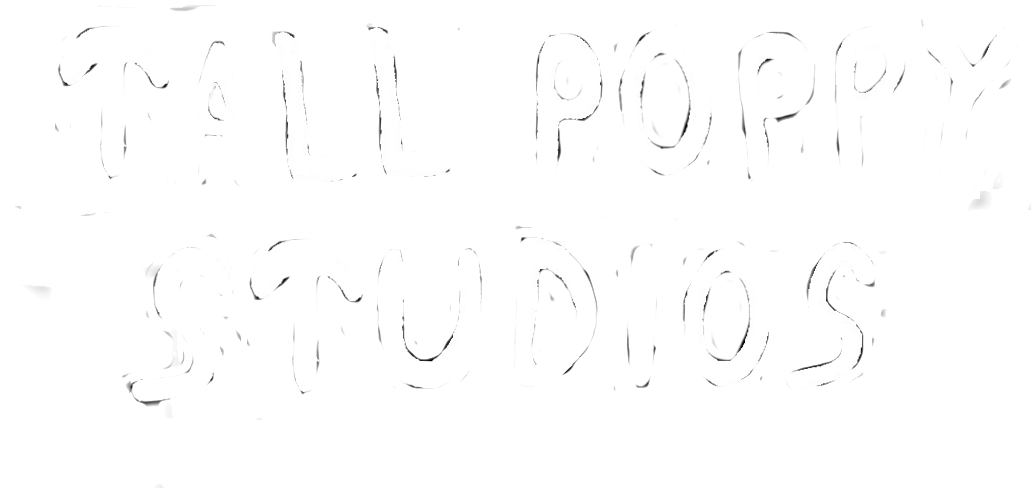 TALL POPPY
STUDIOS